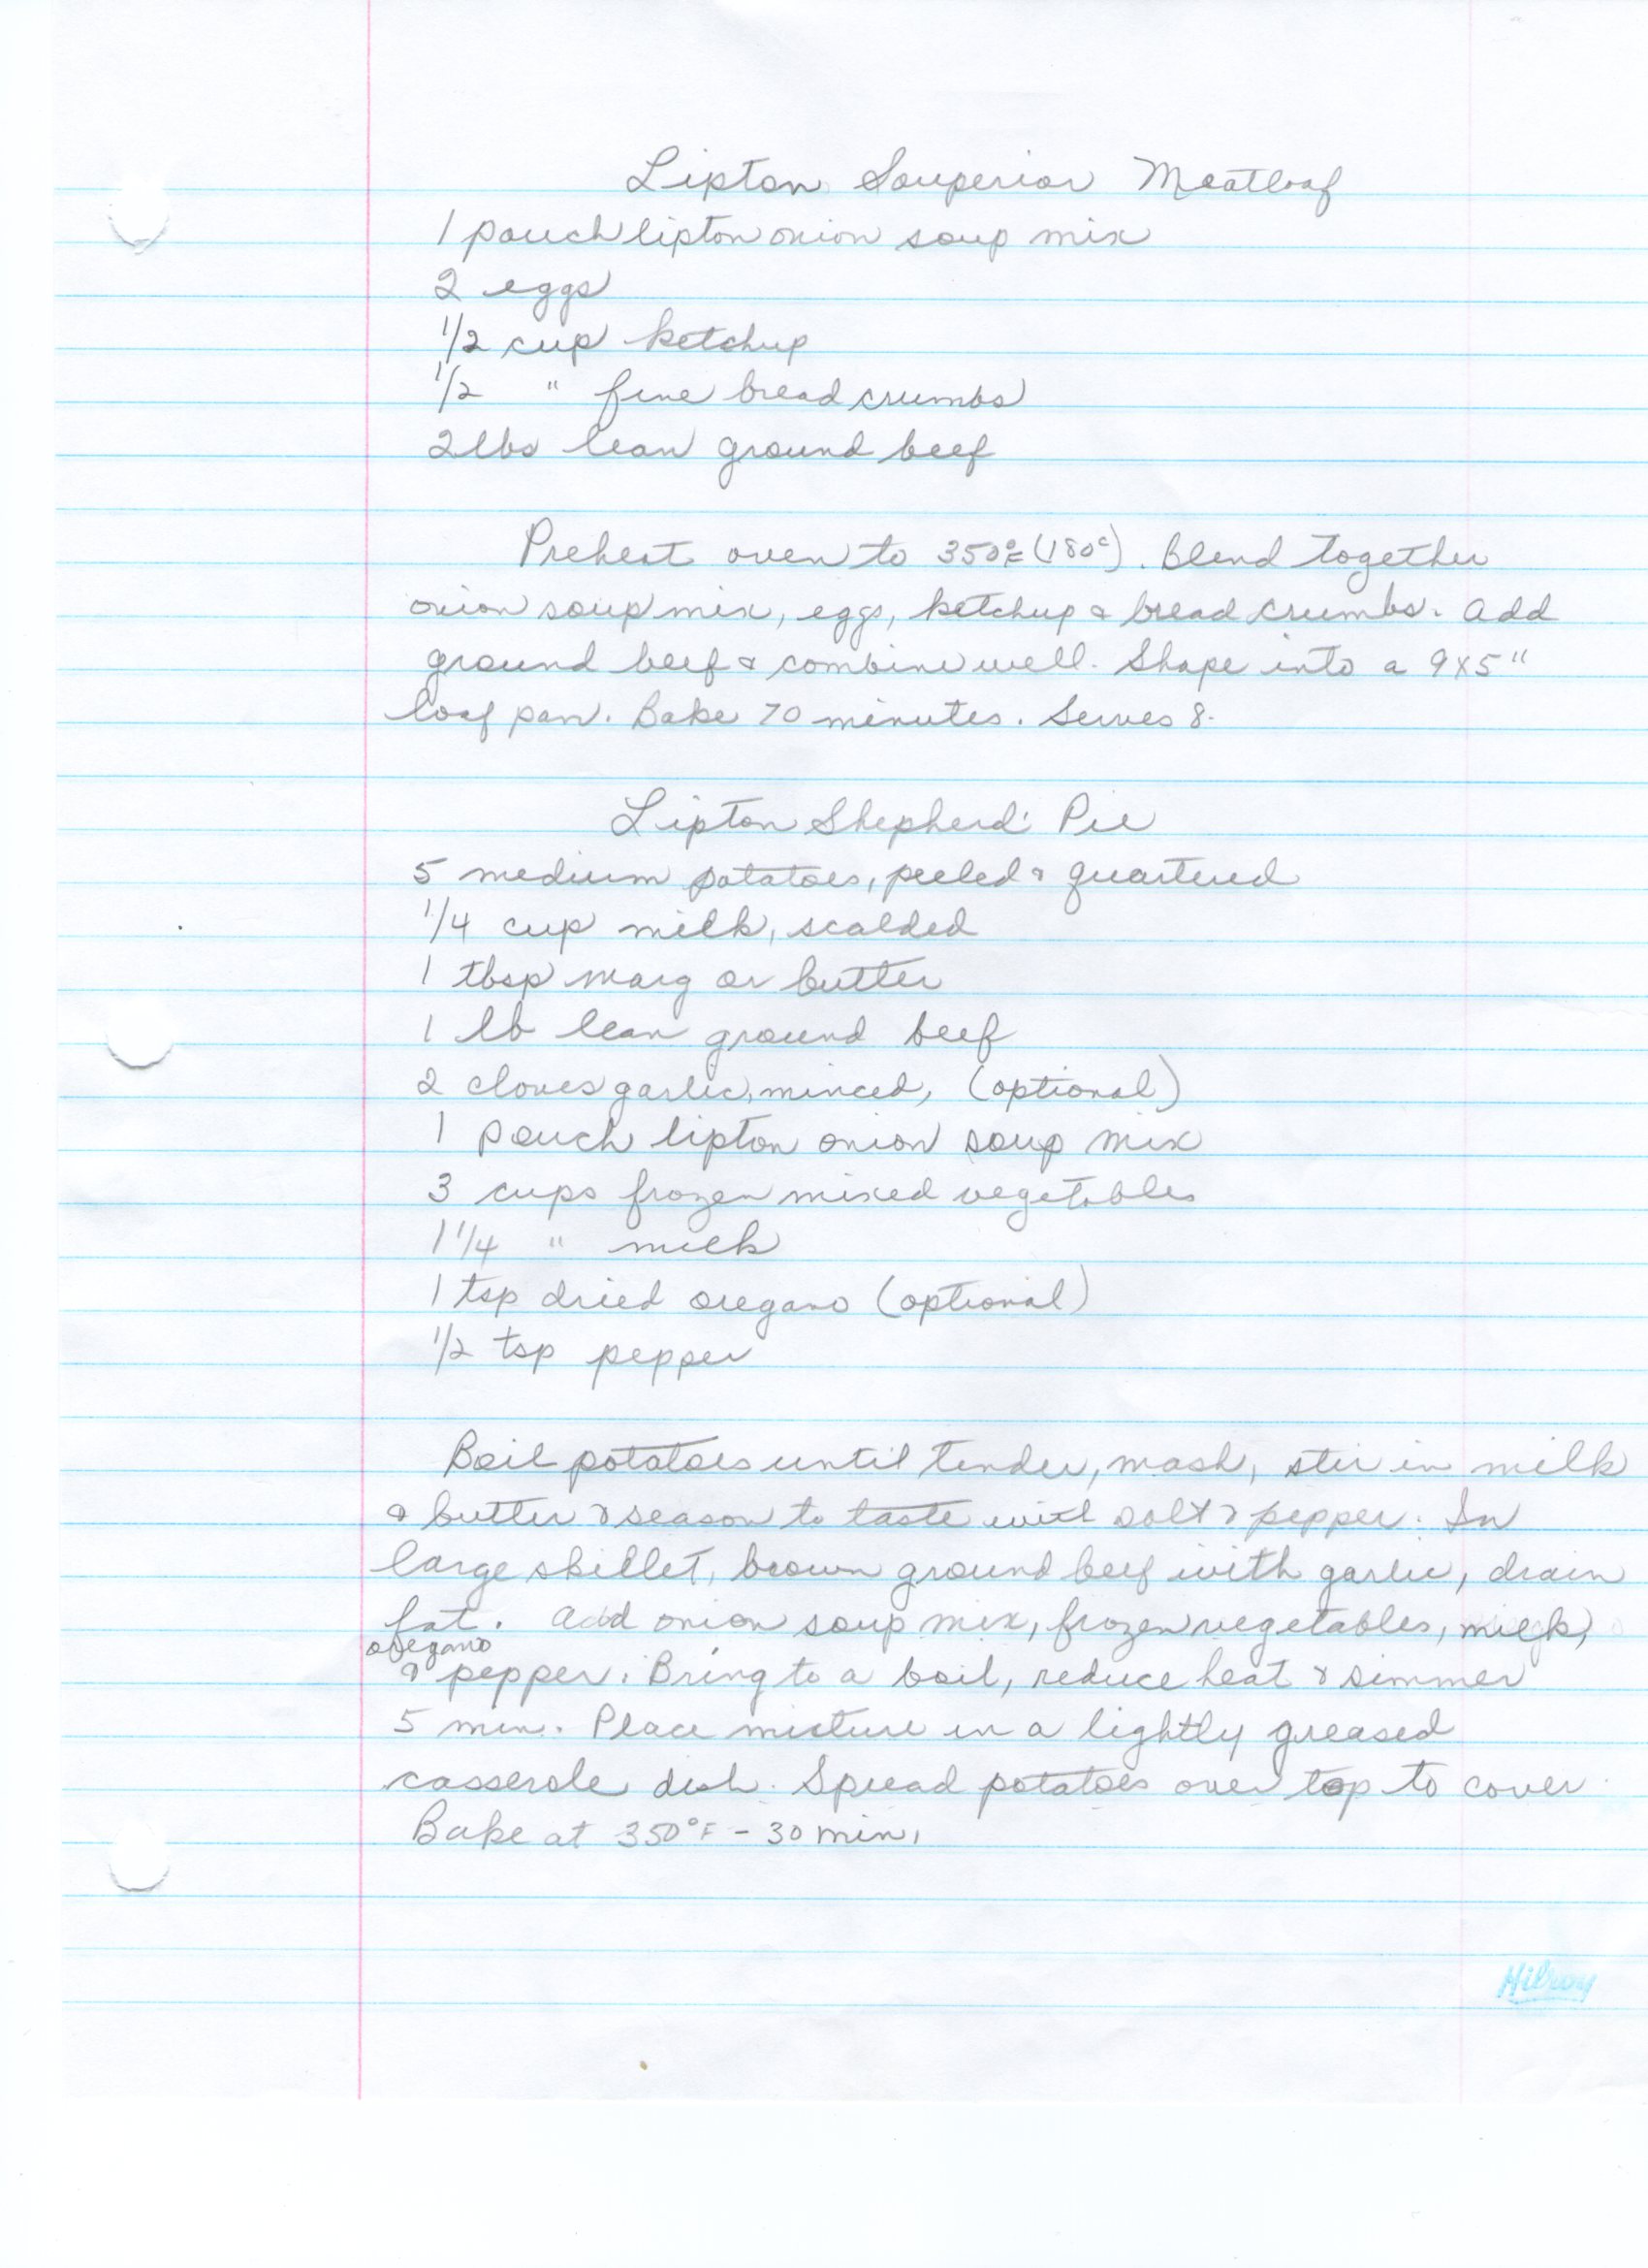 Lipton Souperior Meatloaf
1 pouch lipton onion soup mix
2 eggs
1/2 cup ketchup
1/2 " fine bread crumbs
2 lbs lean ground beef
Preheat oven to 350°F (180°C). Blend together
onion soup mix, eggs, ketchup & bread crumbs. Add
ground beef & combine well. Shape into a 9x5"
loaf pan. Bake 70 minutes. Serves 8.
Lipton Shepherd' Pie
5 medium potatoes, peeled & quartered
1/4 cup milk, scalded
1 tbsp marg or butter
1 lb lean ground beef
2 cloves garlic, minced, (optional)
1 pouch lipton onion soup mix
3 cups frozen mixed vegetables
1 1/4 " milk
1 tsp dried oregano (optional)
1/2 tsp pepper
Boil potatoes until tender, mash, stir in milk
& butter & season to taste with salt & pepper. In
large skillet, brown ground beef with garlic, drain
fat. Add onion soup mix, frozen vegetables, milk,
oregano
& pepper. Bring to a boil, reduce heat & simmer
5 min. Place mixture in a lightly greased
casserole dish. Spread potatoes over top to cover.
Bake at 350°F - 30 min.
Hilroy